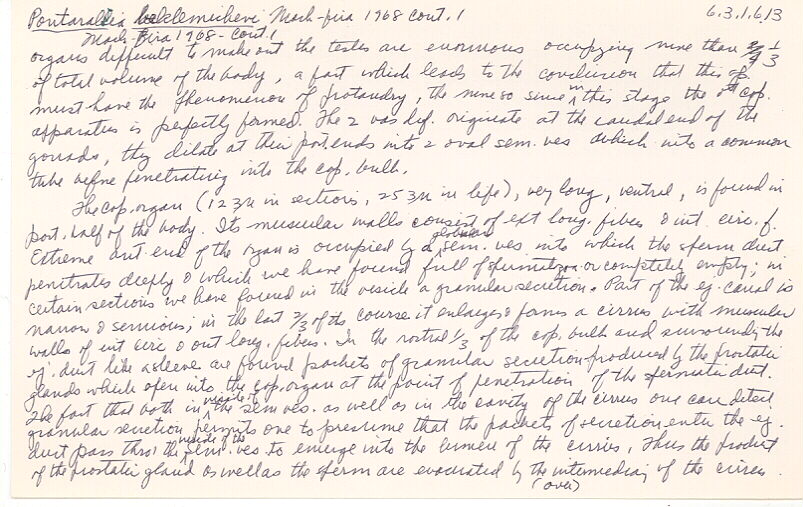 Pontaralia beklemichevi Mack-fira 1968 cont. 1 6.3.1.6/3
Mack-Fira 1968 - Cont. 1
organs difficult to make out the testes are enormous occupying more than 1/3
of total volume of the body, a fact which leads to the conclusion that this sp
must have the phenomenon of protandry, the more so since in this stage the ♂ cop.
apparatus is perfectly formed. The 2 vas def. originate at the caudal end of the
gonads, they dilate at their post. ends into 2 oval sem. ves which into a common
tube before penetrating into the cop. bulb.
The cop. organ (123µ in sections, 253µ in life), very long, ventral, is found in
post. half of the body. Its muscular walls consist of ext long. fibers & int. circ. f.
Extreme ant. end of the organ is occupied by a globular sem. ves into which the sperm duct
penetrates deeply & which we have found full of spermatozoa or completely empty; in
certain sections we have found in the vesicle a granular secretion. Part of the ej. canal is
narrow & sinuous; in the last 2/3 of its course it enlarges & forms a cirrus with muscular
walls of int circ & out long. fibers. In the rostral 1/3 of the cop. bulb and surrounding the
ej. duct like a sleeve are found packets of granular secretion produced by the prostatic
glands which open into the cop. organ at the point of penetration of the spermatic duct.
The fact that both in inside of the sem ves. as well as in the cavity of the cirrus one can detect
granular secretion permits one to presume that the packets of secretion enter the ej.
duct pass thro the inside of the sem. ves to emerge into the lumen of the cirrus, thus the product
of the prostatic gland as well as the sperm are evacuated by the intermediary of the cirrus.
(over)